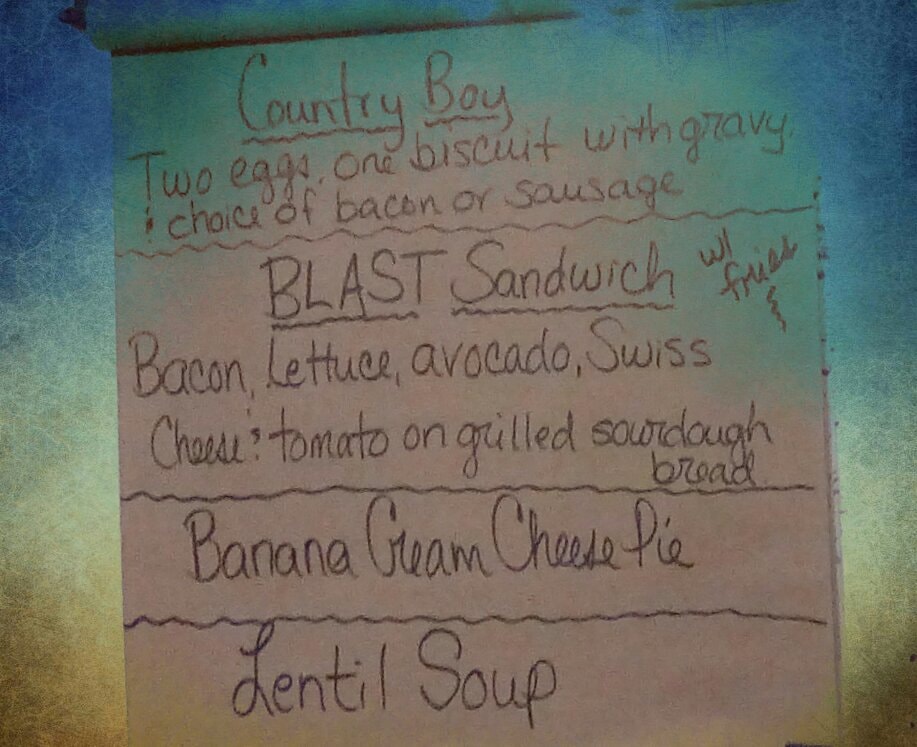 Country Boy
Two eggs, one biscuit with gravy
& choice of bacon or sausage
BLAST Sandwich w/ fries
Bacon, Lettuce, avocado, Swiss
Cheese & tomato on grilled sourdough
bread
Banana Cream Cheese Pie
Lentil Soup